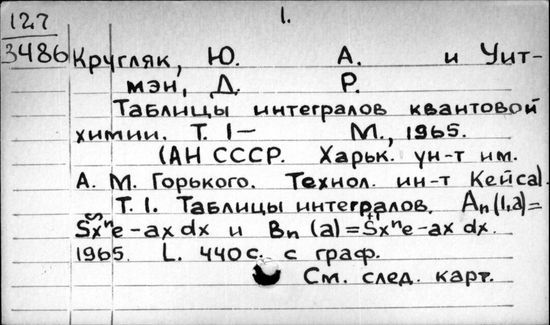 1.
127
3486
Кругляк, Ю. А. и Уит-
мэн, Д. Р.
Таблицы интегралов квантовой
химии. Т. 1— М., 1965.
(АН СССР. Харьк. ун-т им.
А. М. Горького. Технол. ин-т Кейса).
Т. 1. Таблицы интегралов. An(1,a)=
∞
Sxⁿe-ax dx и Bn (a)=Sxⁿe-ax dx.
1965. L. 440 с. с граф.
См. след. карт.